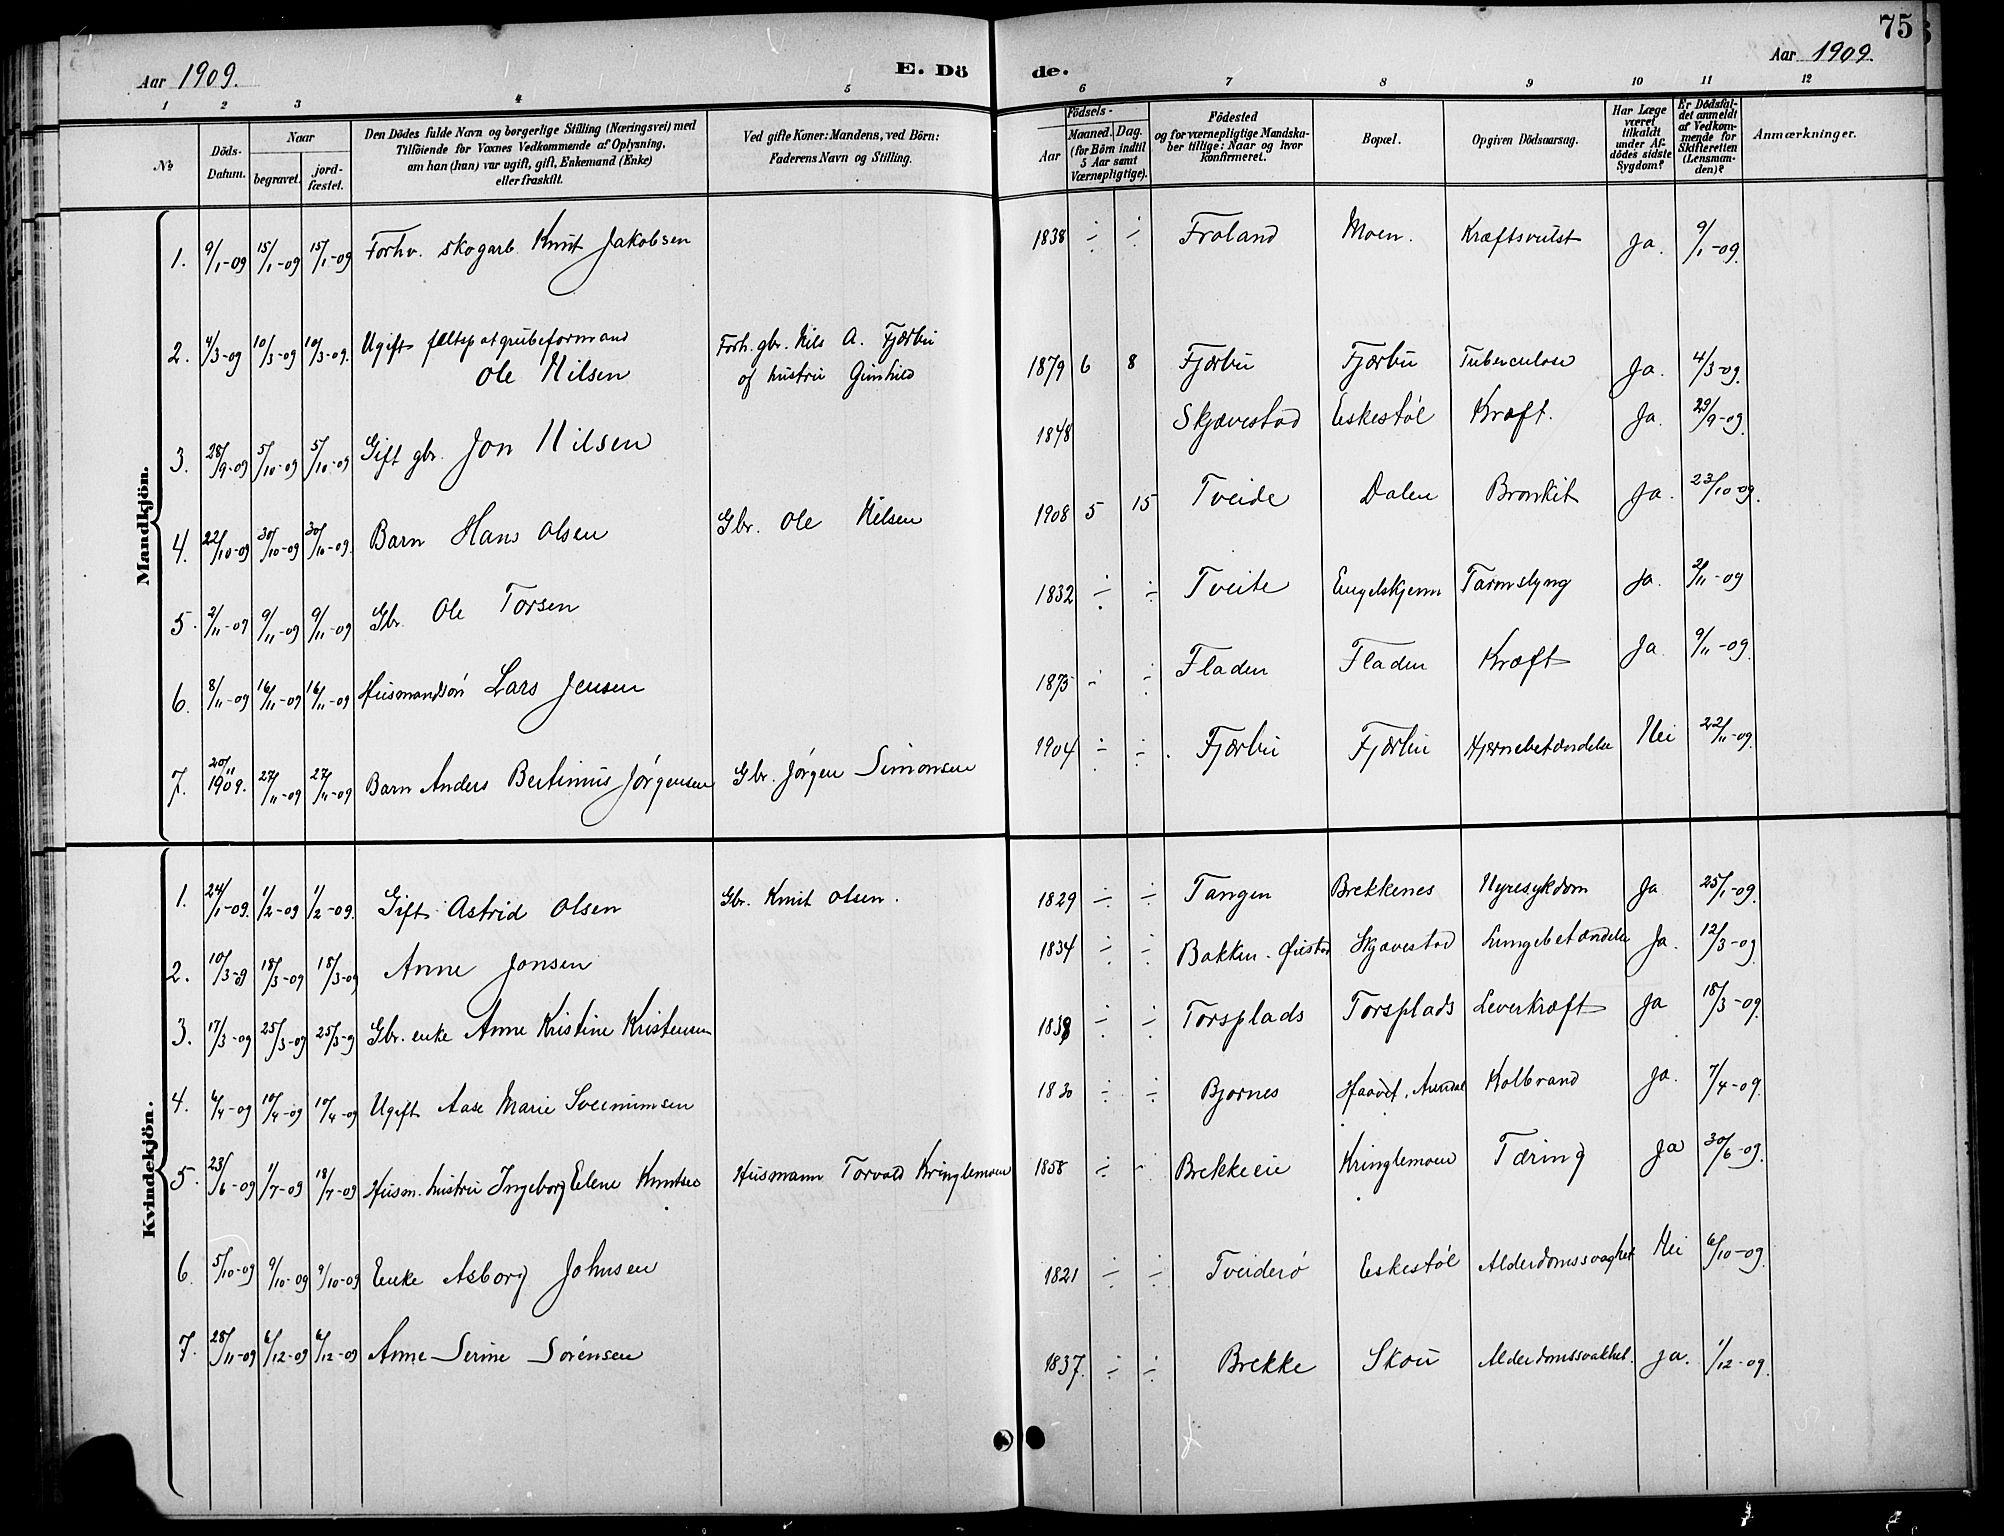 75
Aar 1909.
E. Dö de.
Aar 1909.
1 2 3 4 5 6 7 8 9 10 11 12
№
Döds-Datum.
Naar
begravet.
jordfæstet.
Den Dödes fulde Navn og borgerlige Stilling (Næringsvei) med
Tilföiende for Voxnes Vedkommende af Oplysning,
om han (hun) var ugift, gift, Enkemand (Enke)
eller fraskilt.
Ved gifte Koner: Mandens, ved Börn:
Faderens Navn og Stilling.
Födsels-
Aar
Maaned. Dag.
(for Börn indtil
5 Aar samt
Værnepligtige).
Födested
og for værnepligtige Mandskaber tillige: Naar og hvor
konfirmeret.
Bopæl.
Opgiven Dödsaarsag.
Har Læge
været
tilkaldt
under Afdödes sidste
Sygdom?
Er Dödsfaldet anmeldt
af Vedkommende for
Skifteretten
(Lensmanden)?
Anmærkninger.
Mandkjön.
1. 9/1-09 15/1-09 15/1-09 Forhv. skogarb. Knut Jakobsen 1838 ÷ ÷ Froland Moen. Kræftsvulst Ja. 9/1-09.
2. 4/3-09 10/3-09 10/3-09. Ugift feltspatgrubeformand Ole Nilsen Forh. gbr. Nils A. Fjærbu og hustru Gunhild 1879 6 8 Fjærbu Fjærbu Tuberculose Ja. 4/3-09.
3. 28/9-09 5/10-09 5/10-09 Gift gbr. Jon Nilsen 1848 Skjævestad Eskestøl Kræft. Ja. 29/9-09.
4. 22/10-09 30/10-09 30/10-09. Barn Hans Olsen Gbr. Ole Nilsen 1908 5 15 Tveide Dalen Bronkit Ja. 23/10-09.
5. 2/11-09 9/11-09 9/11-09 Gbr. Ole Torsen 1832 ÷ ÷ Tveite Engelskjenn Tarmslyng Ja. 2/11-09
6. 8/11-09 16/11-09 16/11-09 Husmandssøn Lars Jensen 1875 ÷ ÷ Fladen Fladen Kræft Ja 9/11-09.
7. 20/11 1909. 27/11-09 27/11-09 Barn Anders Bertinius Jørgensen Gbr. Jørgen Simonsen 1904 ÷ ÷ Fjærbu Fjærbu Hjernebetændelse Nei 22/11-09.
Kvindekjön.
1. 24/1-09. 1/2-09 1/2-09. Gift Astrid Olsen Gbr. Knut Olsen. 1829 ÷ ÷ Tangen Brekkenes Nyresykdom Ja. 25/1-09.
2. 10/3-09 18/3-09 18/3-09 Anne Jonsen 1834 ÷ ÷ Bakken. Skjævestad Lungebetændelse Ja. 12/3-09.
3. 17/3-09 25/3-09 25/3-09 Gbr. enke Anne Kristine Kristensen 1838 ÷ ÷ Torsplads Torsplads Leverkræft Ja 18/3-09.
4. 6/4-09 10/4-09 10/4-09 Ugift Aase Marie Sveinumsen 1830 ÷ ÷ Bjornes Haavet, Arendal Kolbrand Ja. 7/4-09.
5. 23/6-09 1/7-09 18/7-09 Husm. hustru Ingeborg Elene Knutsen Husmann Torvald Kringlemoen 1858 ÷ - Brekke eie Kringlemoen Tæring Ja 30/6-09.
6. 5/10-09 9/10-09 9/10-09 Enke Asborg Johnsen 1821 ÷ ÷ Tveiderø Eskestøl Alderdomssvaghet Nei 6/10-09.
7. 28/11-09 6/12-09 6/12-09 Anne Serine Sørensen 1837. ÷ ÷ Brekke Skou Alderdomssvakhet. Ja. 1/12-09.